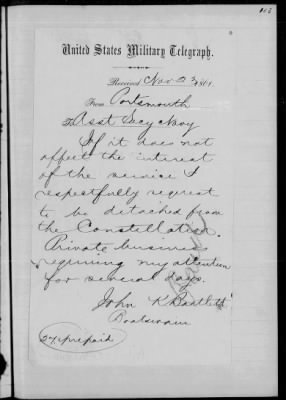 United States Military Telegraph.
Received Nov 23 1861.
From Portsmouth
To Asst Secy Navy
If it does not
affect the interest
of the service I
respectfully request
to be detached from
the Constellation.
Private business
requiring my attention
for several days.
John K Bartlett
Boatswain
prepaid